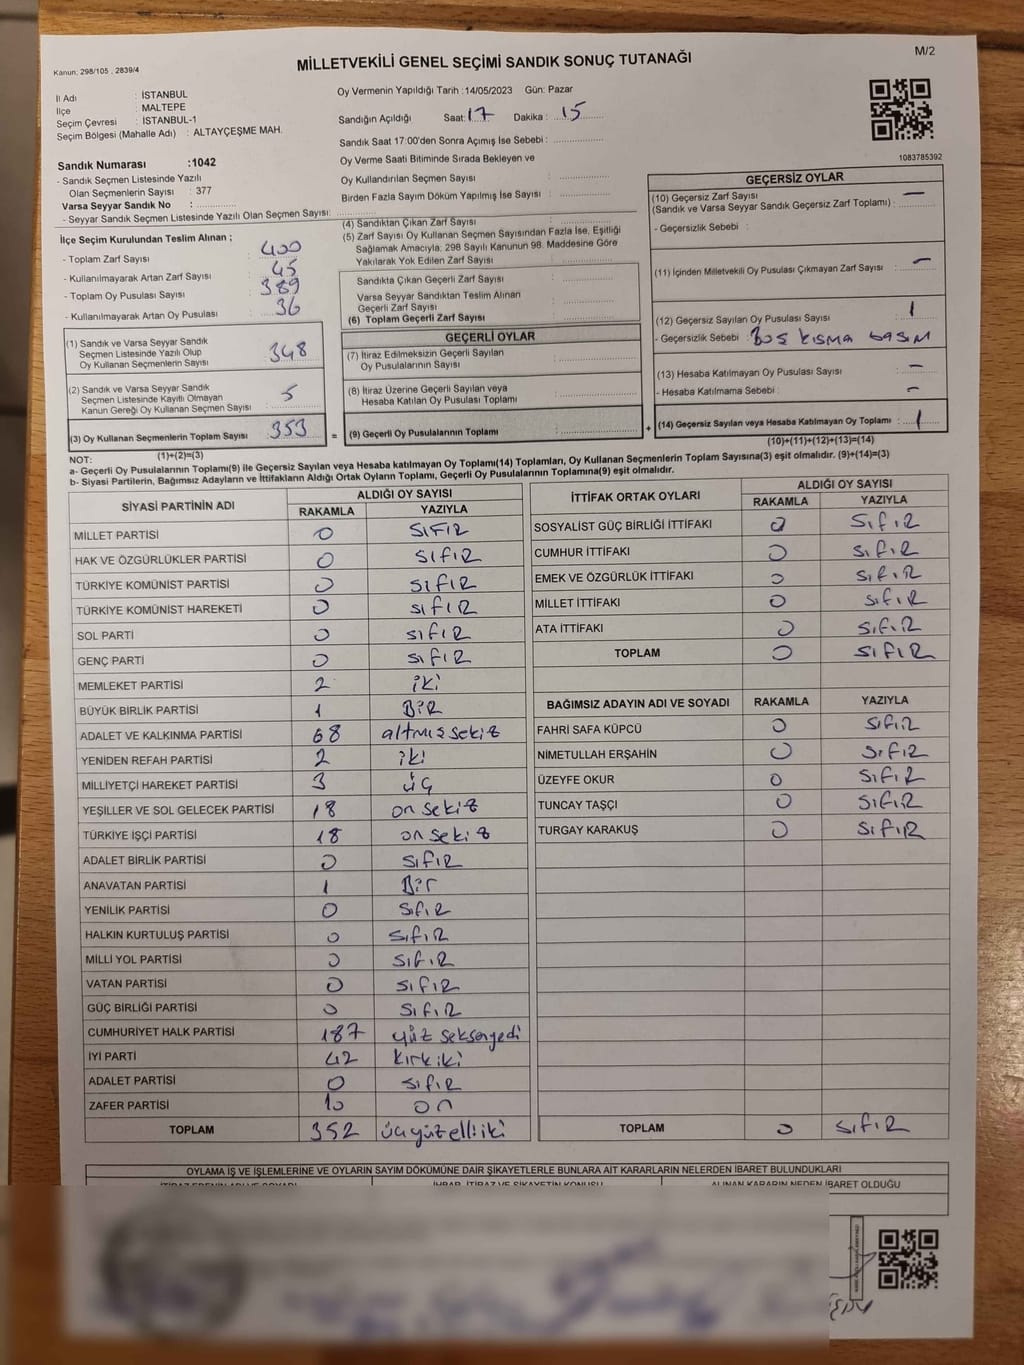 M/2
Kanun: 298/105 , 2839/4
MİLLETVEKİLİ GENEL SEÇİMİ SANDIK SONUÇ TUTANAĞI
İl Adı : İSTANBUL
İlçe : MALTEPE
Seçim Çevresi : İSTANBUL-1
Seçim Bölgesi (Mahalle Adı) : ALTAYÇEŞME MAH.
Sandık Numarası :1042
- Sandık Seçmen Listesinde Yazılı
Olan Seçmenlerin Sayısı : 377
Varsa Seyyar Sandık No :
- Seyyar Sandık Seçmen Listesinde Yazılı Olan Seçmen Sayısı:
Oy Vermenin Yapıldığı Tarih :14/05/2023 Gün: Pazar
Sandığın Açıldığı Saat: 17 Dakika : 15
Sandık Saat 17:00'den Sonra Açımış İse Sebebi :
Oy Verme Saati Bitiminde Sırada Bekleyen ve
Oy Kullandırılan Seçmen Sayısı :
Birden Fazla Sayım Döküm Yapılmış İse Sayısı :
1083785392
İlçe Seçim Kurulundan Teslim Alınan ;
- Toplam Zarf Sayısı : 400
- Kullanılmayarak Artan Zarf Sayısı : 45
- Toplam Oy Pusulası Sayısı : 389
- Kullanılmayarak Artan Oy Pusulası : 36
(1) Sandık ve Varsa Seyyar Sandık
Seçmen Listesinde Yazılı Olup
Oy Kullanan Seçmenlerin Sayısı : 348
(2) Sandık ve Varsa Seyyar Sandık
Seçmen Listesinde Kayıtlı Olmayan
Kanun Gereği Oy Kullanan Seçmen Sayısı : 5
(3) Oy Kullanan Seçmenlerin Toplam Sayısı : 353
(1)+(2)=(3)
(4) Sandıktan Çıkan Zarf Sayısı :
(5) Zarf Sayısı Oy Kullanan Seçmen Sayısından Fazla İse, Eşitliği
Sağlamak Amacıyla; 298 Sayılı Kanunun 98. Maddesine Göre
Yakılarak Yok Edilen Zarf Sayısı :
Sandıkta Çıkan Geçerli Zarf Sayısı :
Varsa Seyyar Sandıktan Teslim Alınan
Geçerli Zarf Sayısı :
(6) Toplam Geçerli Zarf Sayısı :
GEÇERLİ OYLAR
(7) İtiraz Edilmeksizin Geçerli Sayılan
Oy Pusulalarının Sayısı :
(8) İtiraz Üzerine Geçerli Sayılan veya
Hesaba Katılan Oy Pusulası Toplamı :
= (9) Geçerli Oy Pusulalarının Toplamı : +
GEÇERSİZ OYLAR
(10) Geçersiz Zarf Sayısı –
(Sandık ve Varsa Seyyar Sandık Geçersiz Zarf Toplamı) :
- Geçersizlik Sebebi :
(11) İçinden Milletvekili Oy Pusulası Çıkmayan Zarf Sayısı : –
(12) Geçersiz Sayılan Oy Pusulası Sayısı : 1
- Geçersizlik Sebebi : BOŞ KISMA BASIM
(13) Hesaba Katılmayan Oy Pusulası Sayısı : –
- Hesaba Katılmama Sebebi : –
(14) Geçersiz Sayılan veya Hesaba Katılmayan Oy Toplamı : 1
(10)+(11)+(12)+(13)=(14)
NOT:
a- Geçerli Oy Pusulalarının Toplamı(9) ile Geçersiz Sayılan veya Hesaba katılmayan Oy Toplamı(14) Toplamları, Oy Kullanan Seçmenlerin Toplam Sayısına(3) eşit olmalıdır. (9)+(14)=(3)
b- Siyasi Partilerin, Bağımsız Adayların ve İttifakların Aldığı Ortak Oyların Toplamı, Geçerli Oy Pusulalarının Toplamına(9) eşit olmalıdır.
SİYASİ PARTİNİN ADI
ALDIĞI OY SAYISI
RAKAMLA YAZIYLA
MİLLET PARTİSİ 0 SIFIR
HAK VE ÖZGÜRLÜKLER PARTİSİ 0 SIFIR
TÜRKİYE KOMÜNİST PARTİSİ 0 SIFIR
TÜRKİYE KOMÜNİST HAREKETİ 0 SIFIR
SOL PARTİ 0 SIFIR
GENÇ PARTİ 0 SIFIR
MEMLEKET PARTİSİ 2 iki
BÜYÜK BİRLİK PARTİSİ 1 BİR
ADALET VE KALKINMA PARTİSİ 68 altmış sekiz
YENİDEN REFAH PARTİSİ 2 iki
MİLLİYETÇİ HAREKET PARTİSİ 3 üç
YEŞİLLER VE SOL GELECEK PARTİSİ 18 on sekiz
TÜRKİYE İŞÇİ PARTİSİ 18 on sekiz
ADALET BİRLİK PARTİSİ 0 SIFIR
ANAVATAN PARTİSİ 1 Bir
YENİLİK PARTİSİ 0 SIFIR
HALKIN KURTULUŞ PARTİSİ 0 SIFIR
MİLLİ YOL PARTİSİ 0 SIFIR
VATAN PARTİSİ 0 SIFIR
GÜÇ BİRLİĞİ PARTİSİ 0 SIFIR
CUMHURİYET HALK PARTİSİ 187 yüz seksenyedi
İYİ PARTİ 42 kırk iki
ADALET PARTİSİ 0 SIFIR
ZAFER PARTİSİ 10 on
TOPLAM 352 üçyüzelliiki
İTTİFAK ORTAK OYLARI
ALDIĞI OY SAYISI
RAKAMLA YAZIYLA
SOSYALİST GÜÇ BİRLİĞİ İTTİFAKI 0 SIFIR
CUMHUR İTTİFAKI 0 SIFIR
EMEK VE ÖZGÜRLÜK İTTİFAKI 0 SIFIR
MİLLET İTTİFAKI 0 SIFIR
ATA İTTİFAKI 0 SIFIR
TOPLAM 0 SIFIR
BAĞIMSIZ ADAYIN ADI VE SOYADI RAKAMLA YAZIYLA
FAHRİ SAFA KÜPCÜ 0 SIFIR
NİMETULLAH ERŞAHİN 0 SIFIR
ÜZEYFE OKUR 0 SIFIR
TUNCAY TAŞÇI 0 SIFIR
TURGAY KARAKUŞ 0 SIFIR
TOPLAM 0 SIFIR
OYLAMA İŞ VE İŞLEMLERİNE VE OYLARIN SAYIM DÖKÜMÜNE DAİR ŞİKAYETLERLE BUNLARA AİT KARARLARIN NELERDEN İBARET BULUNDUKLARI
İTİRAZ EDENİN ADI VE SOYADI İHBAR, İTİRAZ VE ŞİKAYETİN KONUSU ALINAN KARARIN NEDEN İBARET OLDUĞU